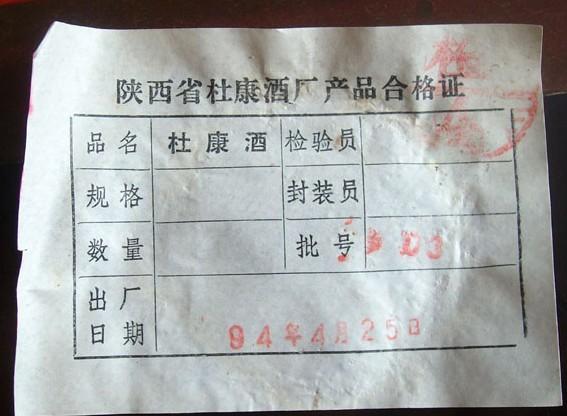 陕西省杜康酒厂产品合格证
品名 杜康酒 检验员
规格 封装员
数量 批号
出厂
日期 94年4月25日